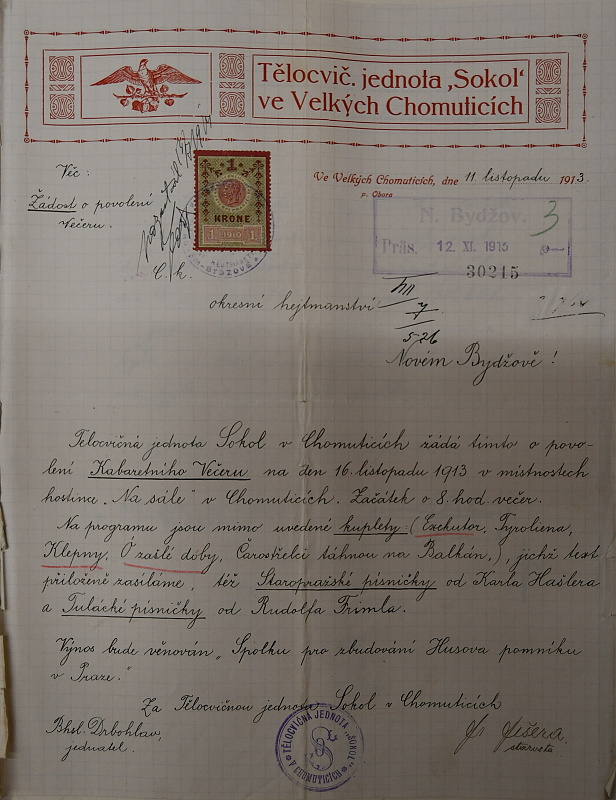 Tělocvič. jednota „Sokol“
ve Velkých Chomuticích
Věc:
Žádost o povolení
Večeru.
1
KRONE
1 1910 1
Ve Velkých Chomuticích, dne 11. listopadu 1913.
p. Obora
N. Bydžov.
3
Präs. 12. XI. 1913
30215
C. k.
okresní hejtmanství
7
526
Novém Bydžově!
Tělocvičná jednota Sokol v Chomuticích žádá tímto o povo-
lení Kabaretního Večeru na den 16. listopadu 1913 v místnostech
hostince „Na sále“ v Chomuticích. Začátek o 8. hod. večer.
Na programu jsou mimo uvedené kuplety: (Exekutor, Tyroliena,
Klepny, O zašlé doby, Čarostřelci táhnou na Balkán,), jichž text
přiloženě zasíláme, též Staropražské písničky od Karla Hašlera
a Tulácké písničky od Rudolfa Frimla.
Výnos bude věnován „Spolku pro zbudování Husova pomníku
v Praze.“
Za Tělocvičnou jednotu Sokol v Chomuticích
Bhsl. Drbohlav,
jednatel.
TĚLOCVIČNÁ JEDNOTA „SOKOL“
V CHOMUTICÍCH
Fr. Fišera.
starosta